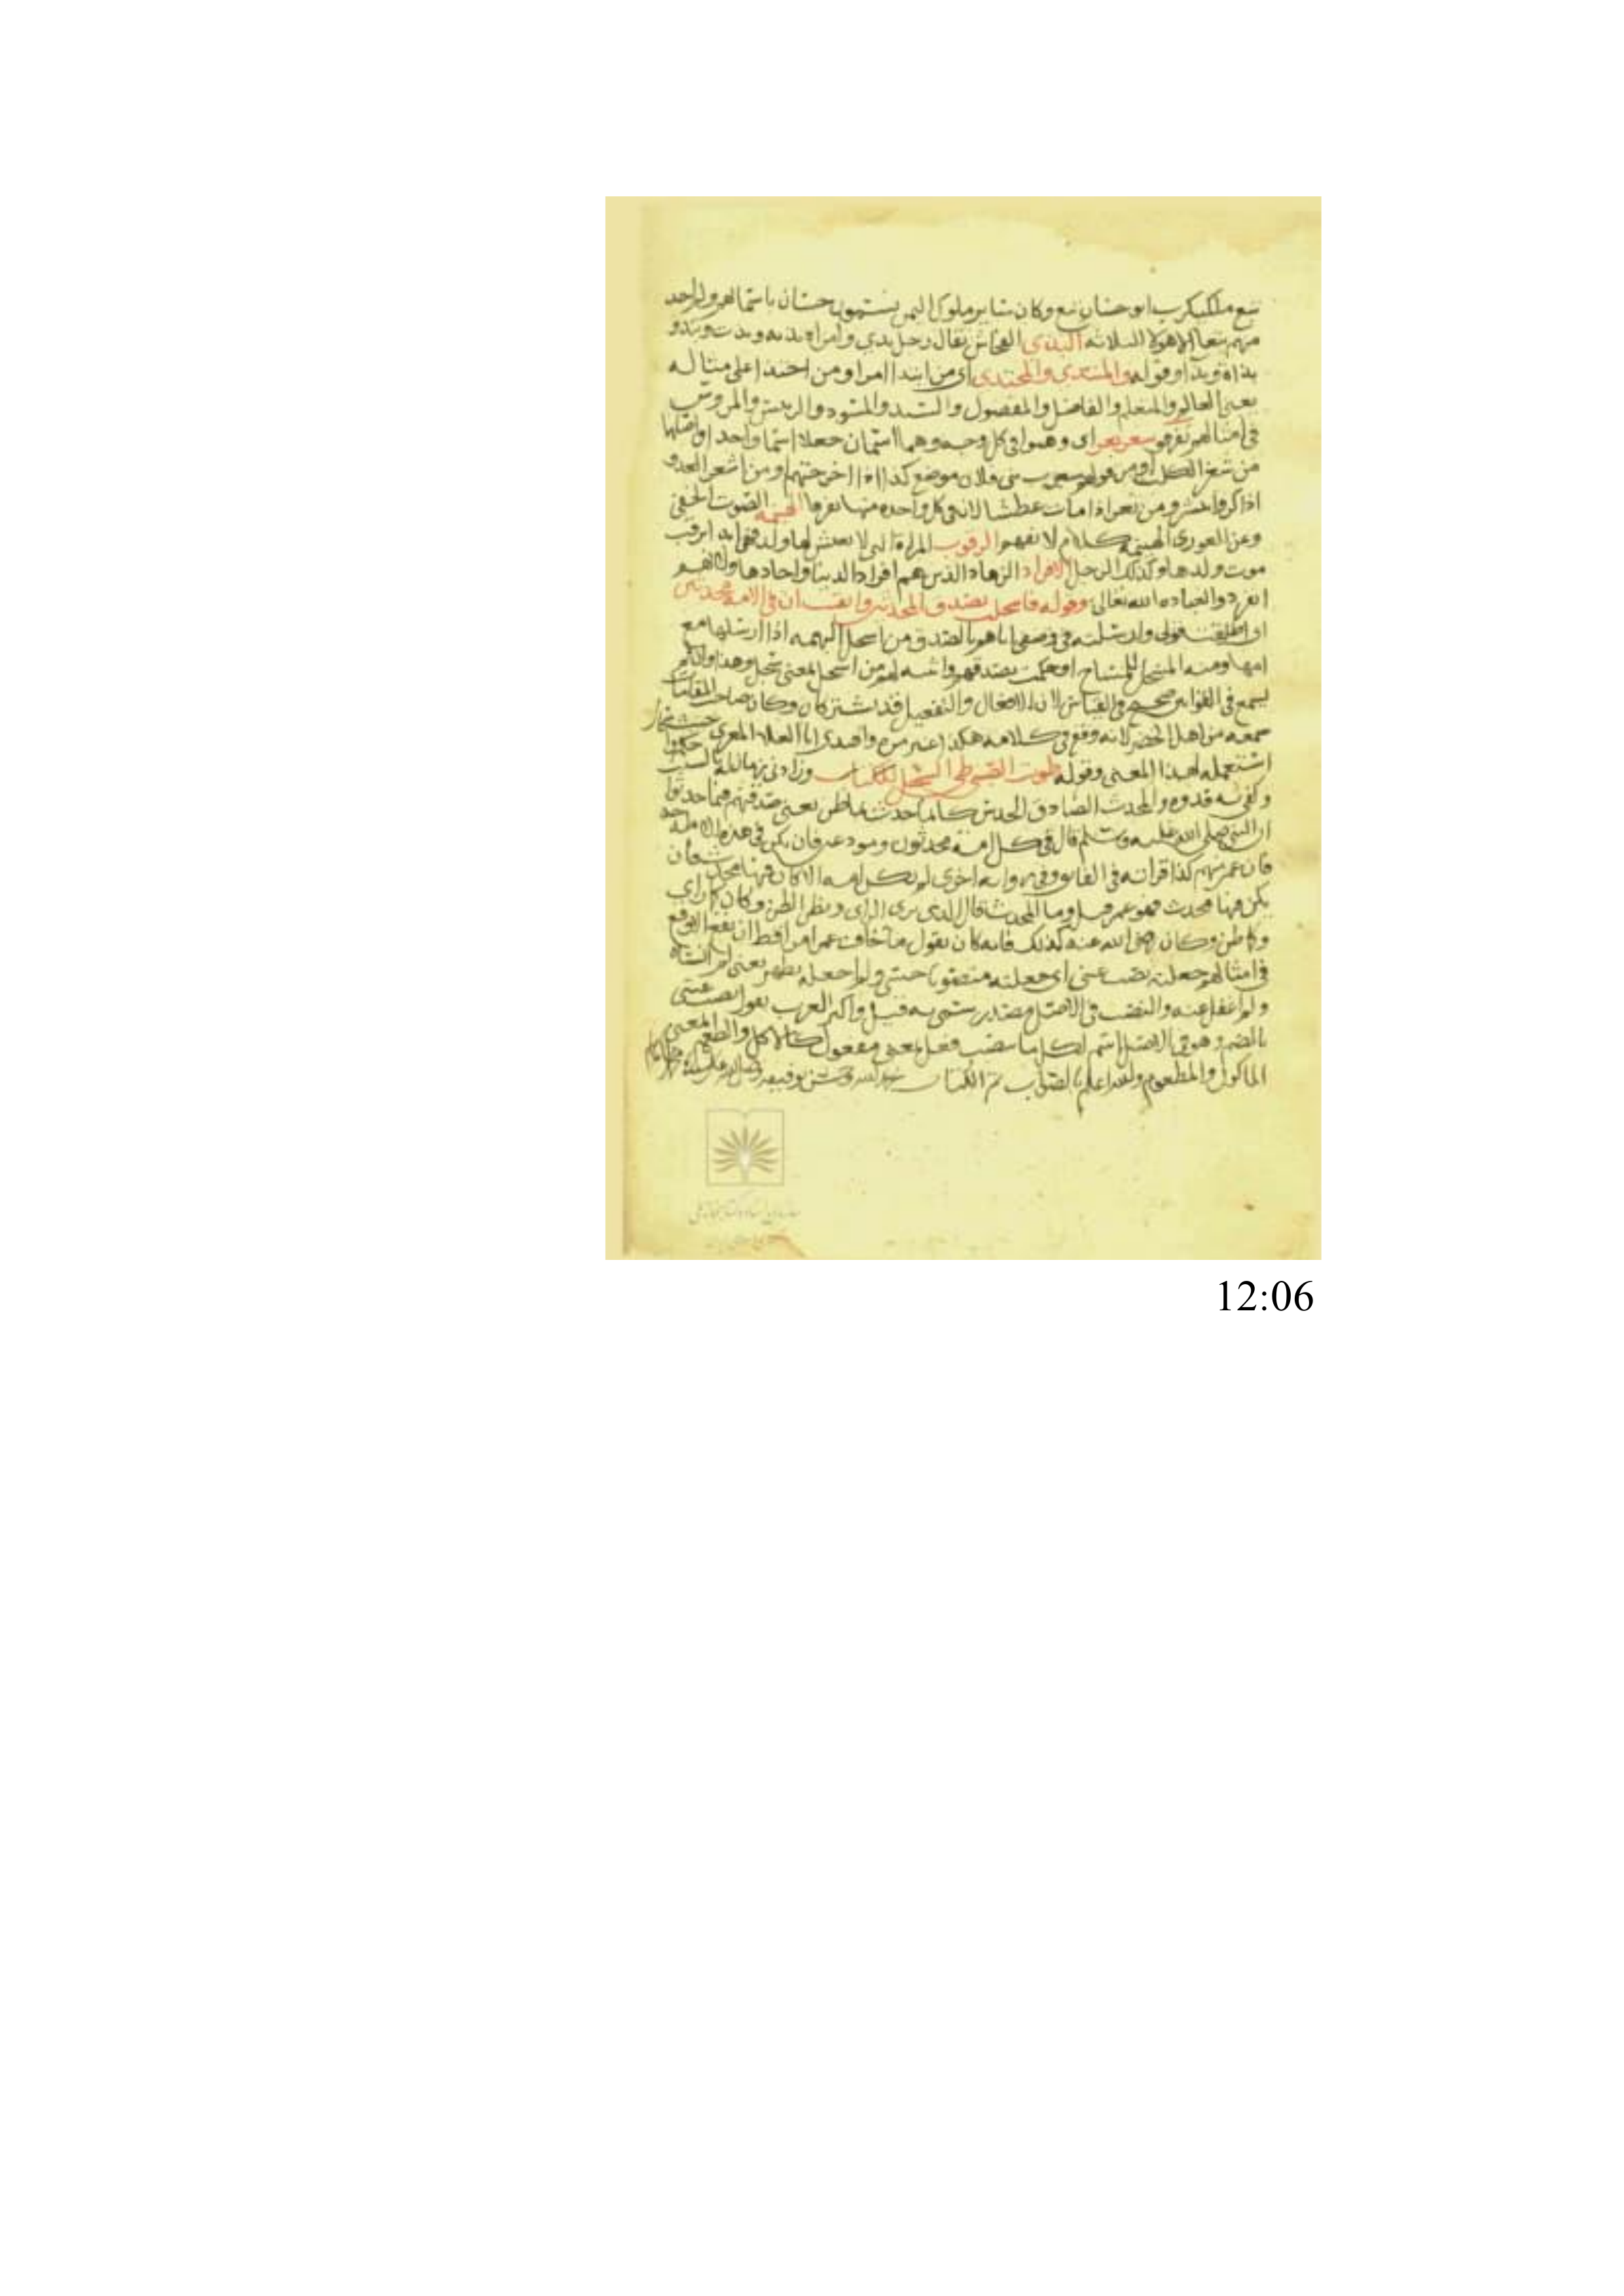 تبع ملكيكرب ابو حسان تبع وكان سائر ملوك اليمن يسمون حسان باسمائهم ولم احد
منهم تبعا الا هولا الثلاثة البذي الفحاش يقال رجل بذي وامراة بذية وبذت وتبذو
بذاة وبذا وقوله والمبتدي والمحتذي اي من ابتدا امرا ومن احتذا على مثاله
يعني العالم والمتعلم والفاضل والمفضول والسيد والمسود والرئيس والمرؤس
في امثالهم تفرقو شغر بغر اي وهبوا في كل وجه وهما اسمان جعلا اسما واحدا واصلها
من شغر الكلب او من قولهم شغرت بني فلان موضع كذا اذا اخرجتهم او من اشتغر العدو
اذا كثر وانتشر ومن بغر اذا مات عطشا لانه في كل واحدة منها تفرقا الهينمة الصوت الخفي
وعن الغوري الهينمة كلام لا يفهم الرقوب المراة التي لا يعيش لها ولد فهي ابدا ترقب
موت ولدها وكذلك الرجل الافراد الزهاد الذين هم افراد الدنيا واحادها ولانهم
انفردوا لعبادة الله تعالى وقوله فاسجلت بصدق المحدث وايقنت ان في الامة محدثين
اي اطلقت قولي وارسلته في وصفي اياهم بالصدق من اسجل البهيمة اذا ارسلها مع
امها ومنه المسجل للمباح او حكمت بصدقهم واثبته لهم من اسجل بمعنى سجل وهذا وان لم
يسمع في القوانين صحيح في القياس لان الافعال والتفعيل قد يشتركان وكان صاحب المقامات
سمعه من اهل الحضر لانه وقع في كلامه هكذا غير مرة واقتدى ابا العلاء المعري حيث
استعمله لهذا المعنى وقوله طويت الصبي طي السجل للكتاب وزادني زماني له بالسبت
وكفى به قدوة والمحدث الصادق الحدس كانما حدث بما ظن يعني صدقهم فيما حدثوا
ان النبي صلى الله عليه وسلم قال في كل امة محدثون ومروعون فان يكن في هذه الامة احد
فان عمر منهم كذا قراته في الفائق وفي رواية اخرى لم تكن امة الا كان فيها محدث فان
يكن فينا محدث فهو عمر قيل وما المحدث قال الذي يرى الراي ويظن الظن وكان كما راي
وكما ظن وكان رضي الله عنه كذلك فانه كان يقول ما خاف عمر امرا قط ان يقع الا وقع
في امثالهم جعلته نصب عيني اي جعلته منصوبا حتى ولم اجعله بظهر يعني لم انسه
ولم اغفل عنه والنصب في الاصل مصدر سمي به قيل واكثر العرب يقول نصب عيني
بالضم وهو في الاصل اسم لكل ما ينصب فعل بمعنى مفعول كالاكل والطعم بمعنى
الماكول والمطعوم والله اعلم بالصواب تم الكتاب بحمد الله وحسن توفيقه
12:06